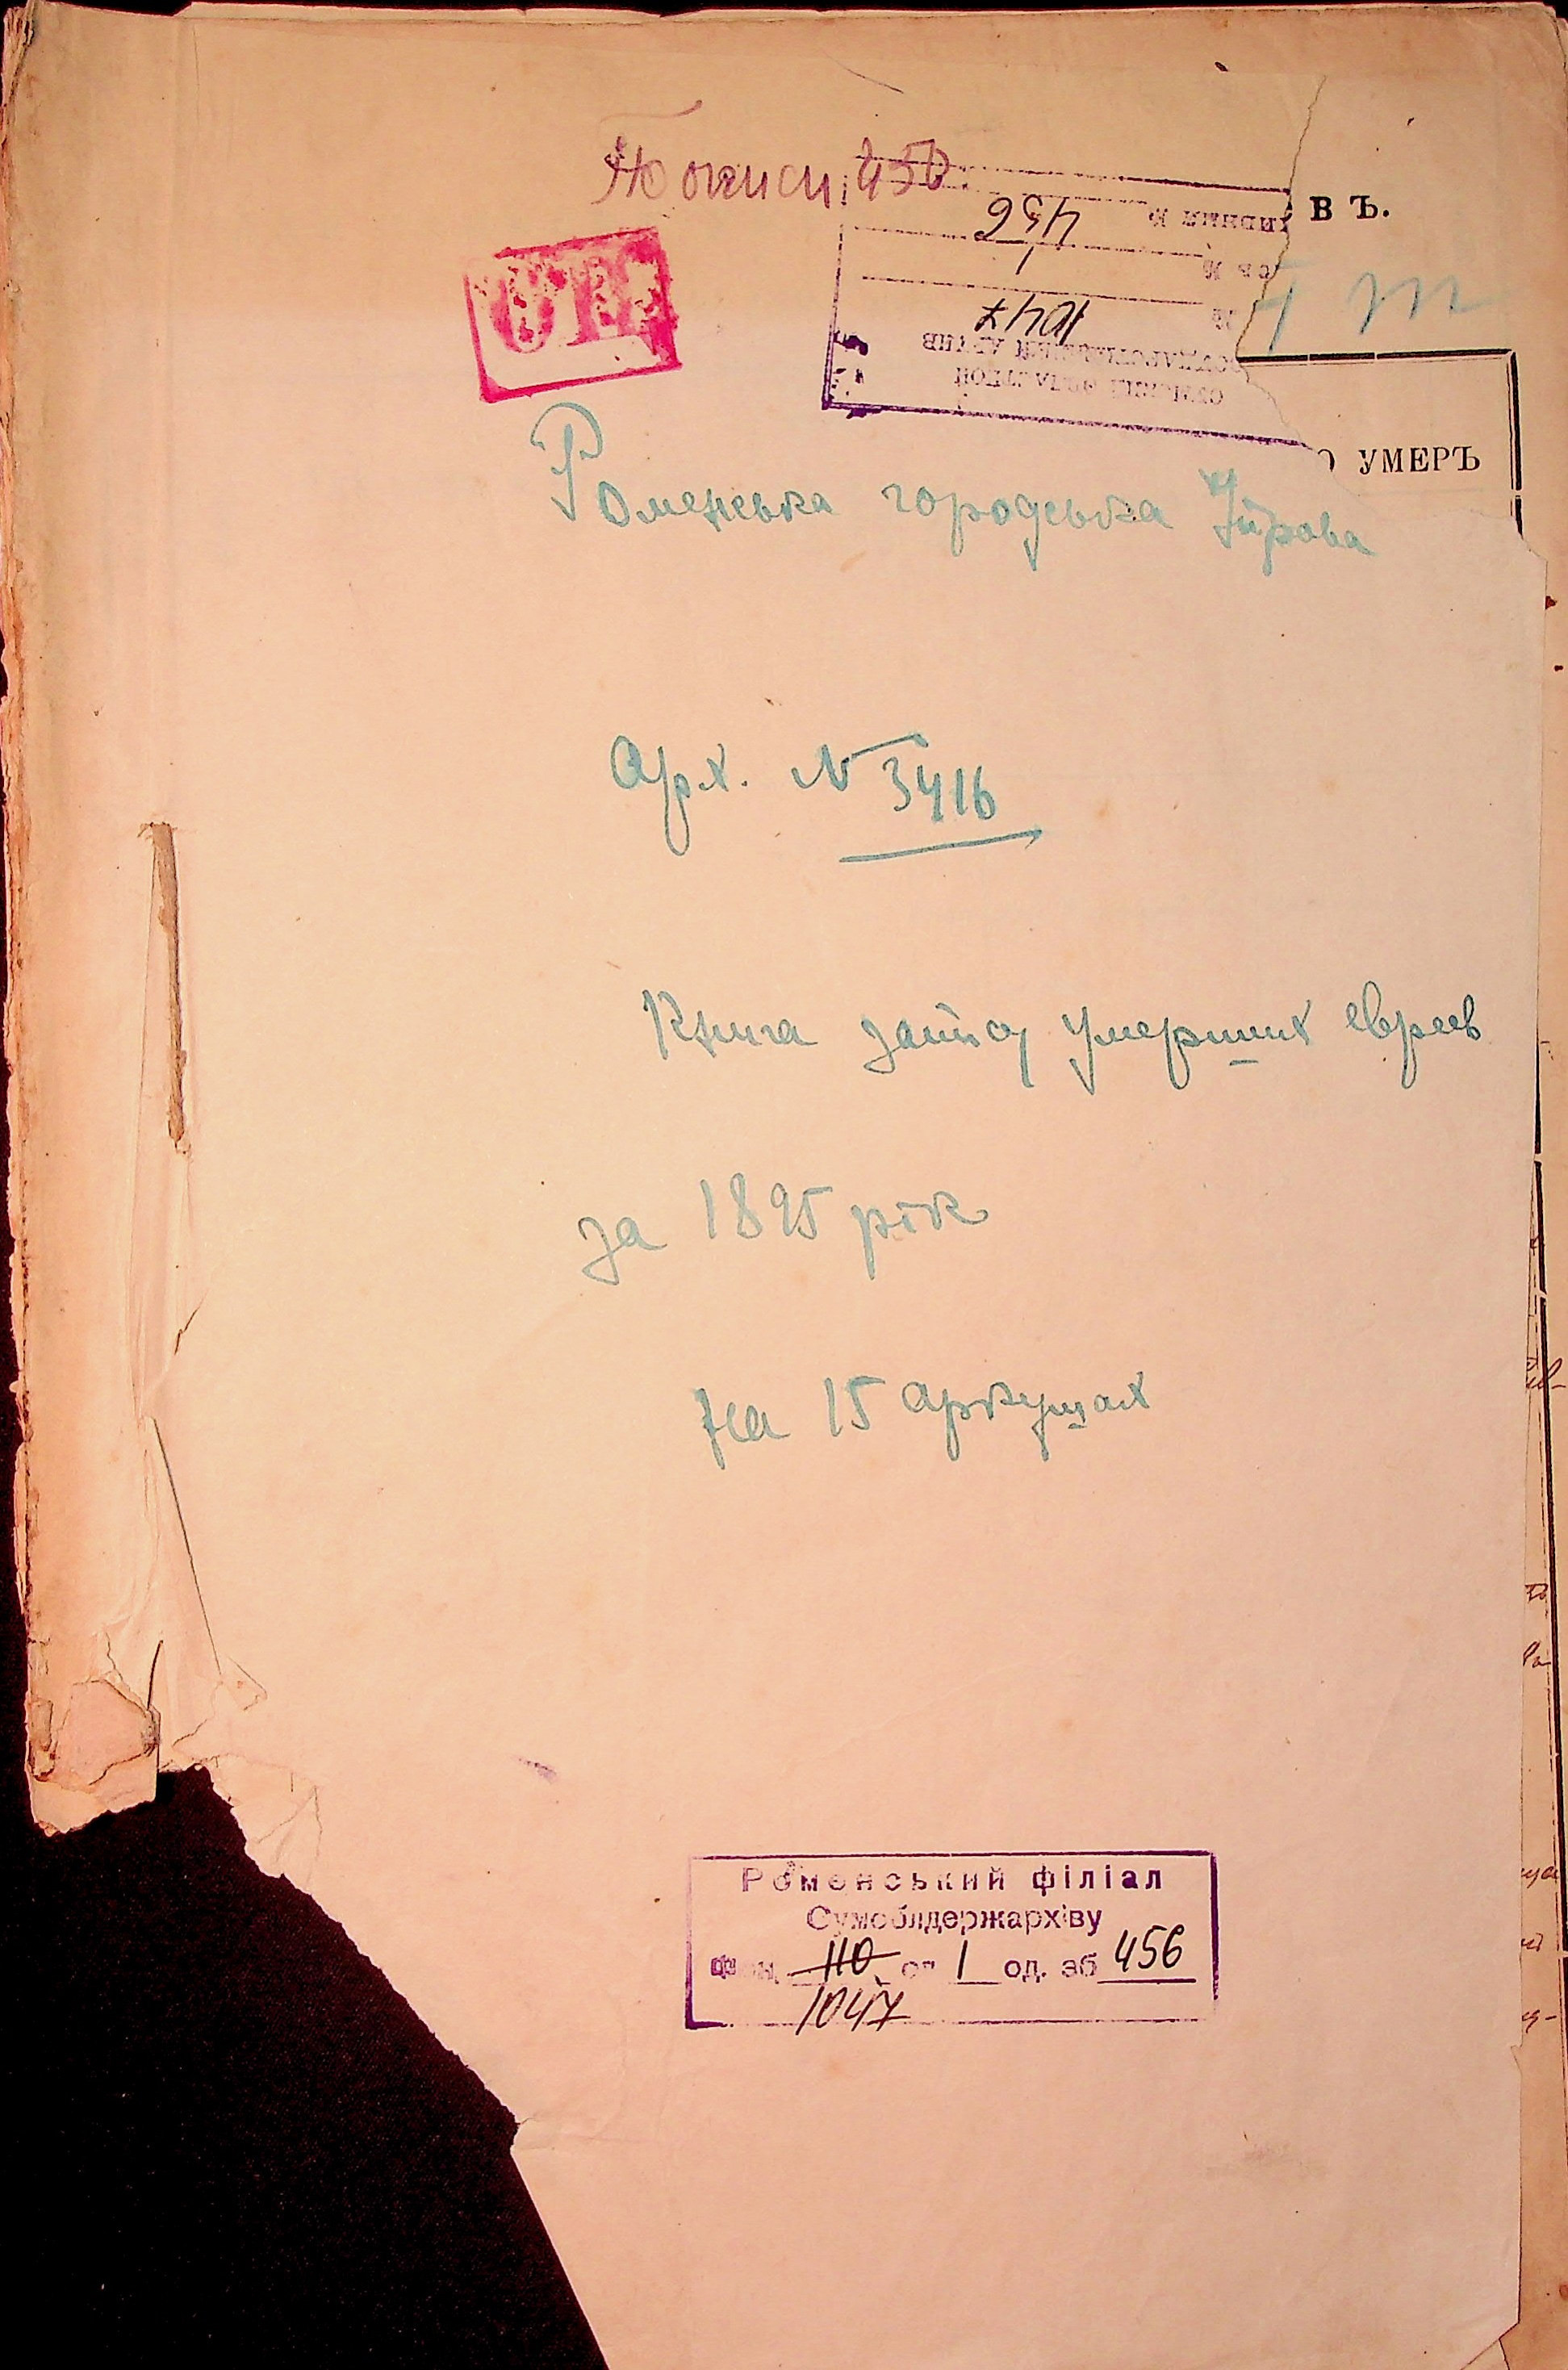 По описи 450
В Ъ.
456
1
1047
СУМСКИЙ ОБЛАСТНОЙ
ГОСУДАРСТВЕННЫЙ АРХИВ
УМЕРЪ
Роменська городська Управа
Арх. N 3416
Книга запису умерших евреев
за 1895 рік
на 15 аркушах
Роменський філіал
Сумоблдержархіву
Фонд 110 оп 1 од. зб 456
1047